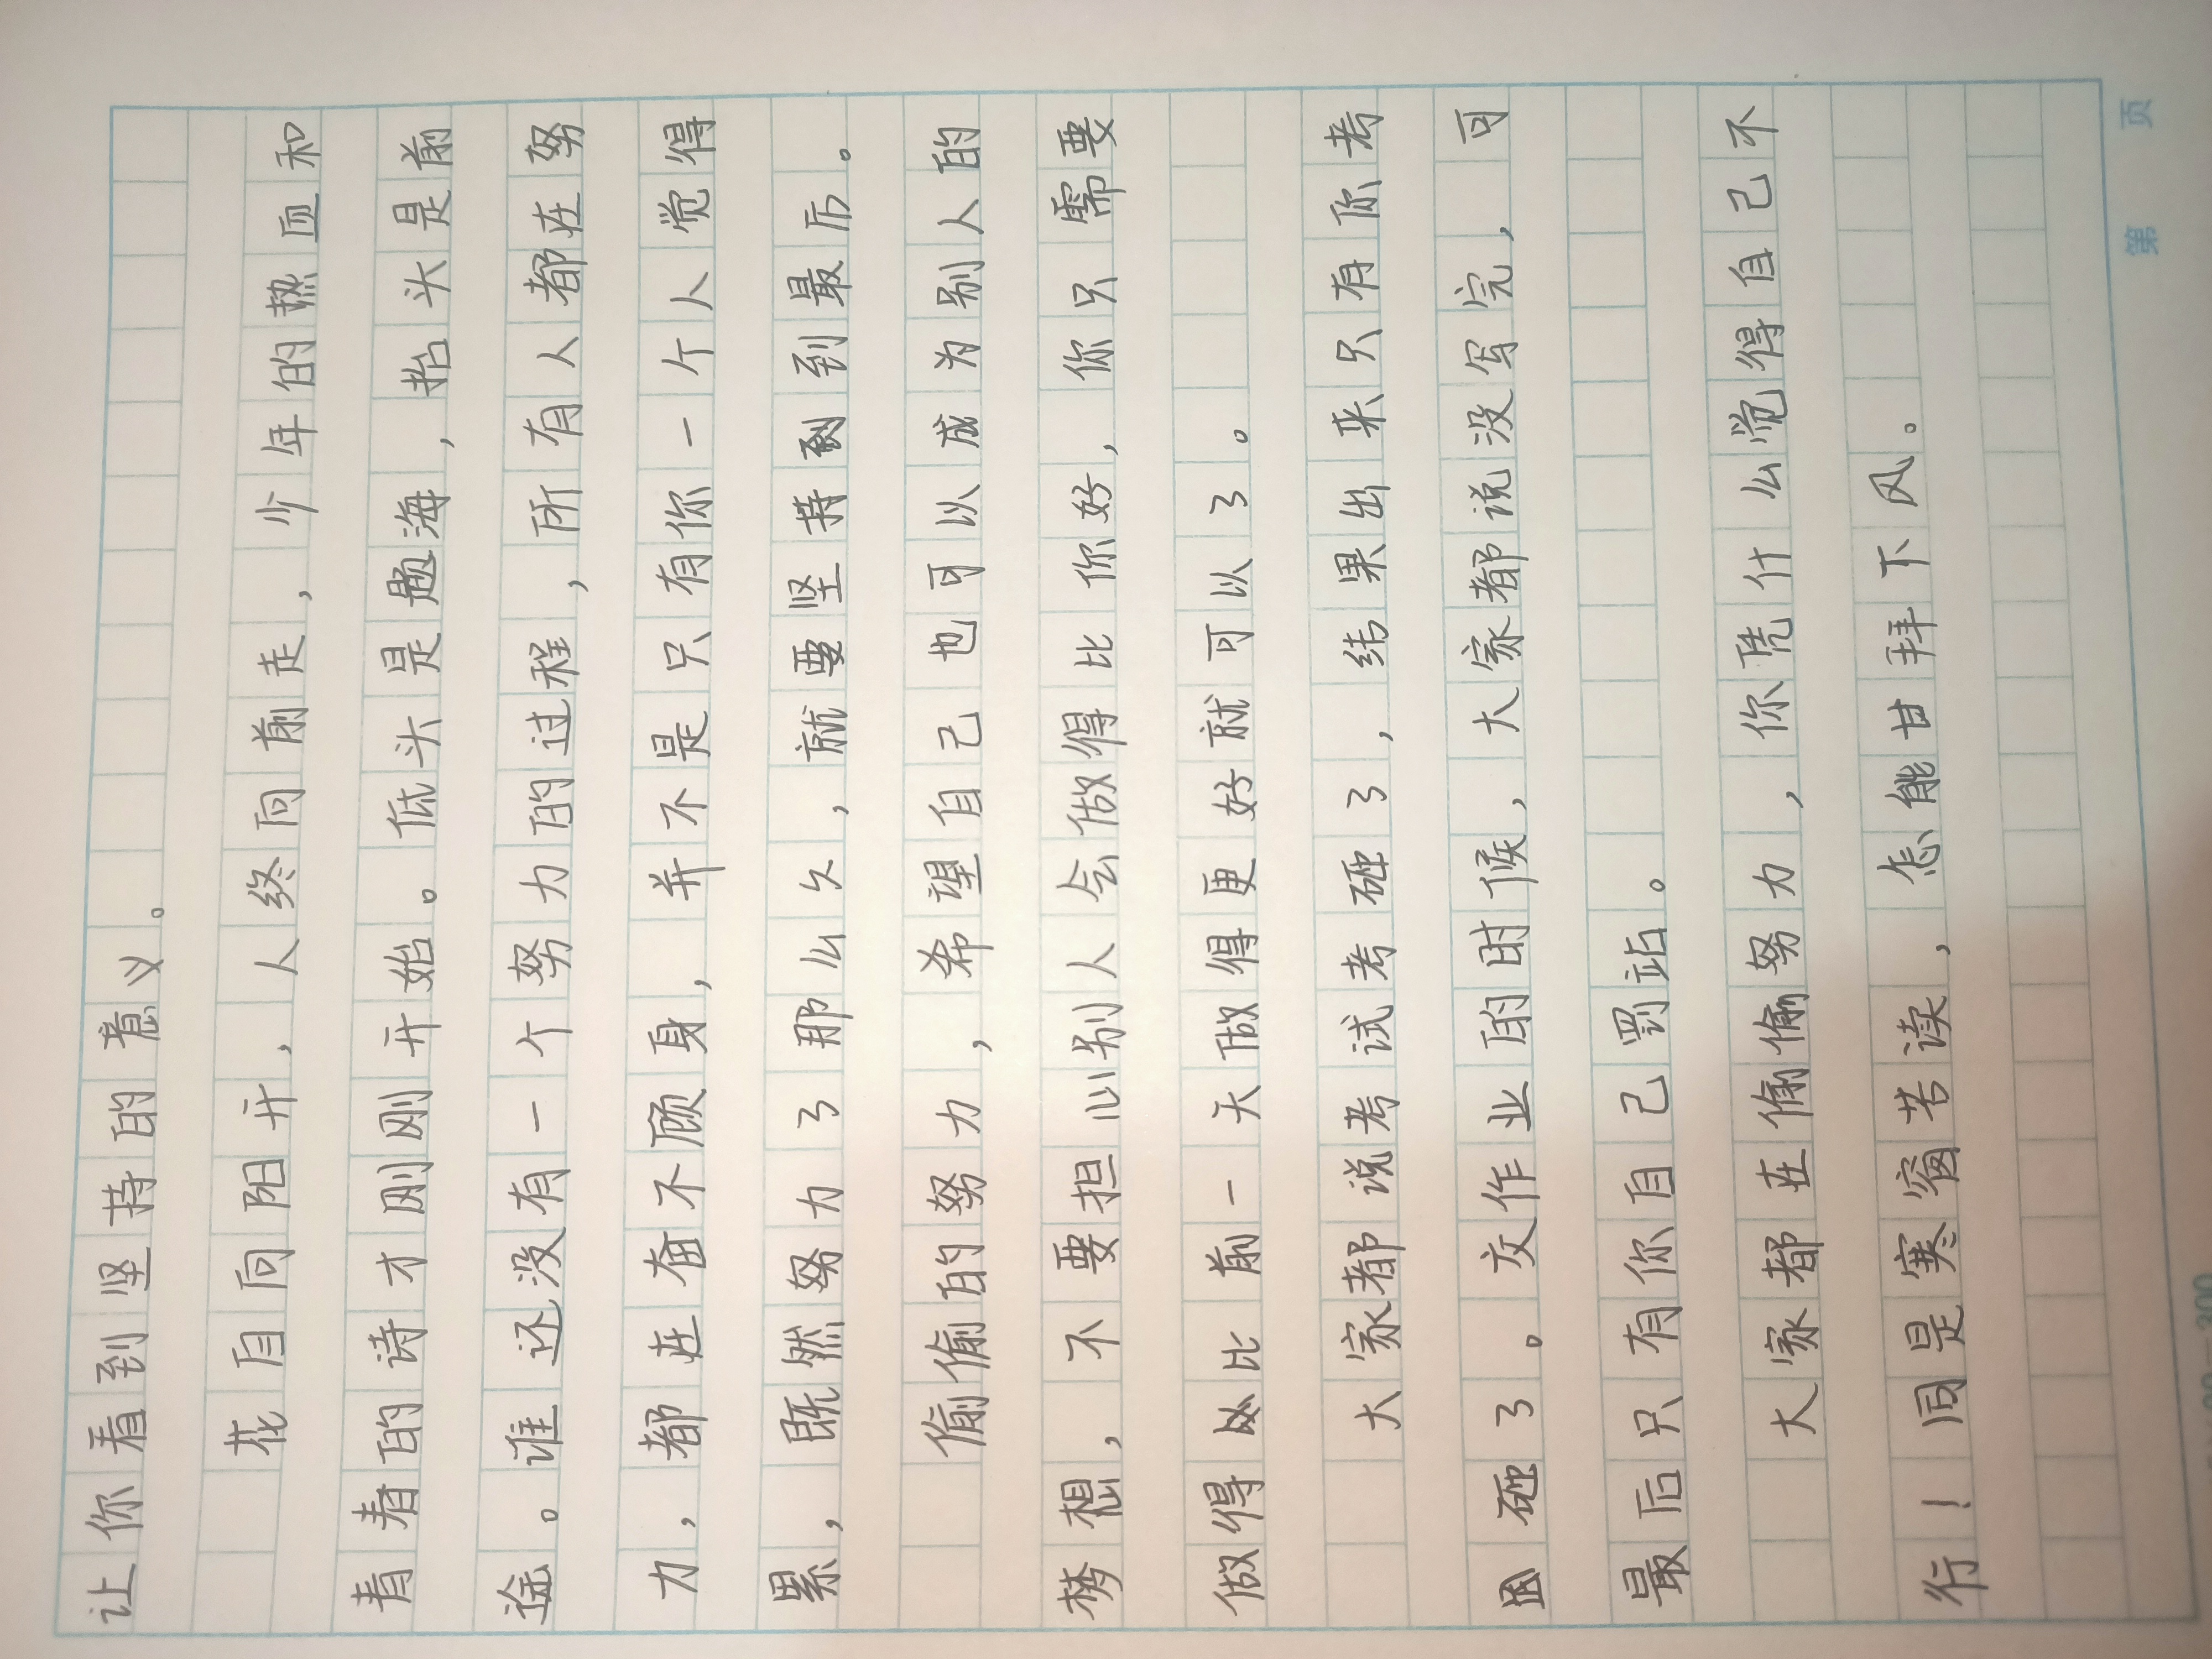 让你看到坚持的意义。
花自向阳开，人终向前走，少年的热血和
青春的诗才刚刚开始。低头是题海，抬头是前
途。谁还没有一个努力的过程，所有人都在努
力，都在奋不顾身，并不是只有你一个人觉得
累，既然努力了那么久，就要坚持到到最后。
偷偷的努力，希望自己也可以成为别人的
梦想，不要担心别人会做得比你好，你只需要
做得比前一天做得更好就可以了。
大家都说考试考砸了，结果出来只有你考
砸了。交作业的时候，大家都说没写完，可
最后只有你自己罚站。
大家都在偷偷努力，你凭什么觉得自己不
行！同是寒窗苦读，怎能甘拜下风。
第 页